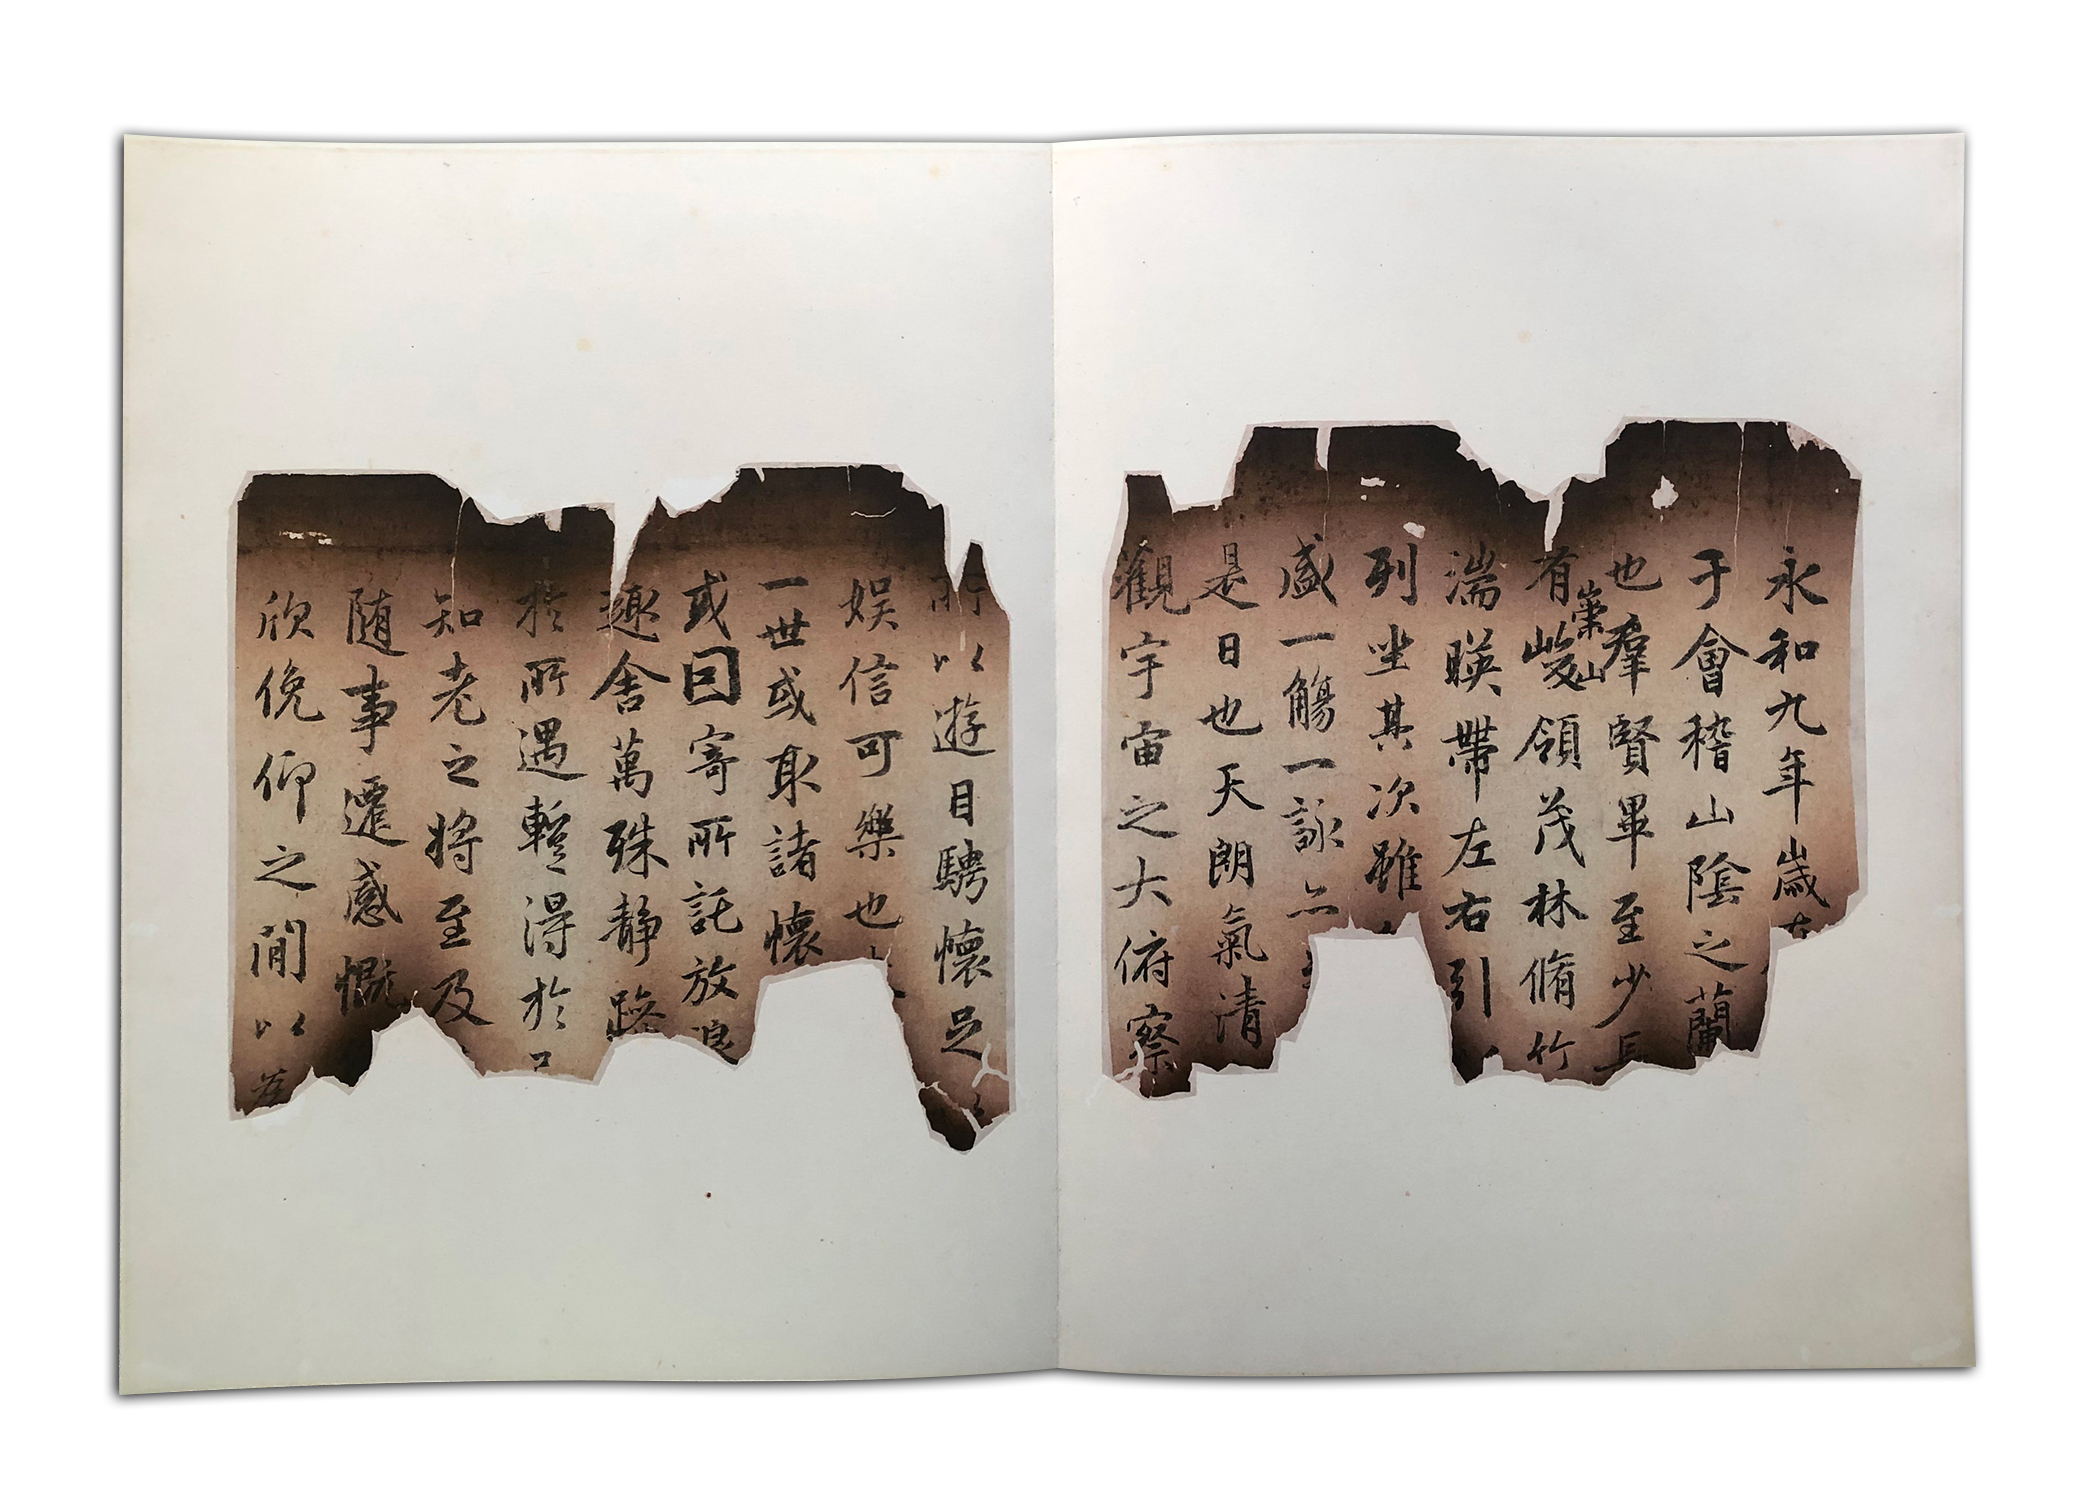 永和九年歲
于會稽山陰之蘭
也羣賢畢至少長
有崇山峻領茂林脩竹
湍暎帶左右引
列坐其次雖
盛一觴一詠亦
是日也天朗氣清
觀宇宙之大俯察
所以遊目騁懷足
娛信可樂也
一世或取諸懷
或因寄所託放浪
趣舍萬殊静躁
於所遇暫得於
知老之將至及
随事遷感慨
欣俛仰之閒以